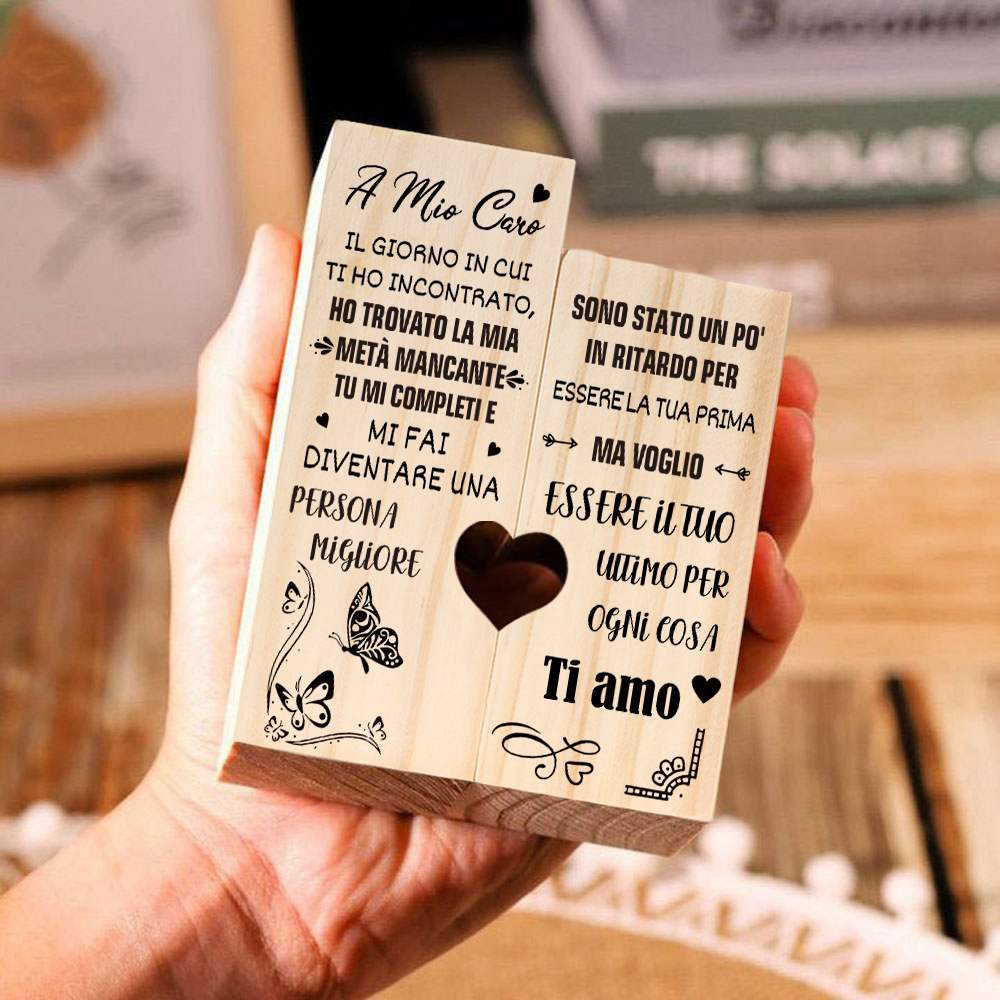 A Mio Caro
IL GIORNO IN CUI
TI HO INCONTRATO,
HO TROVATO LA MIA
METÀ MANCANTE
TU MI COMPLETI E
MI FAI
DIVENTARE UNA
PERSONA
MiGLiORE
SONO STATO UN PO'
IN RITARDO PER
ESSERE LA TUA PRIMA
MA VOGLIO
ESSERE iL TUO
ULTIMO PER
OGNi COSA
Ti amo
THE SOLACE